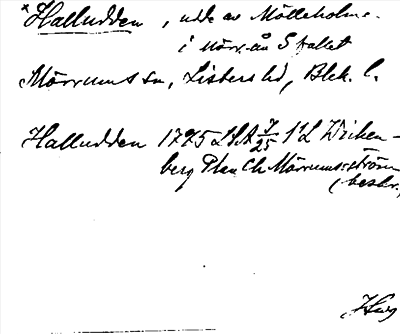 *Halludden, udde av Mölleholme.
i Mörr.ån S fallet
Mörrums sn, Listers hd, Blek. l.
Halludden 1795 LSA 7/25 1:L Wicken-
berg Plan Ch Mörrumsström
(beskr.)